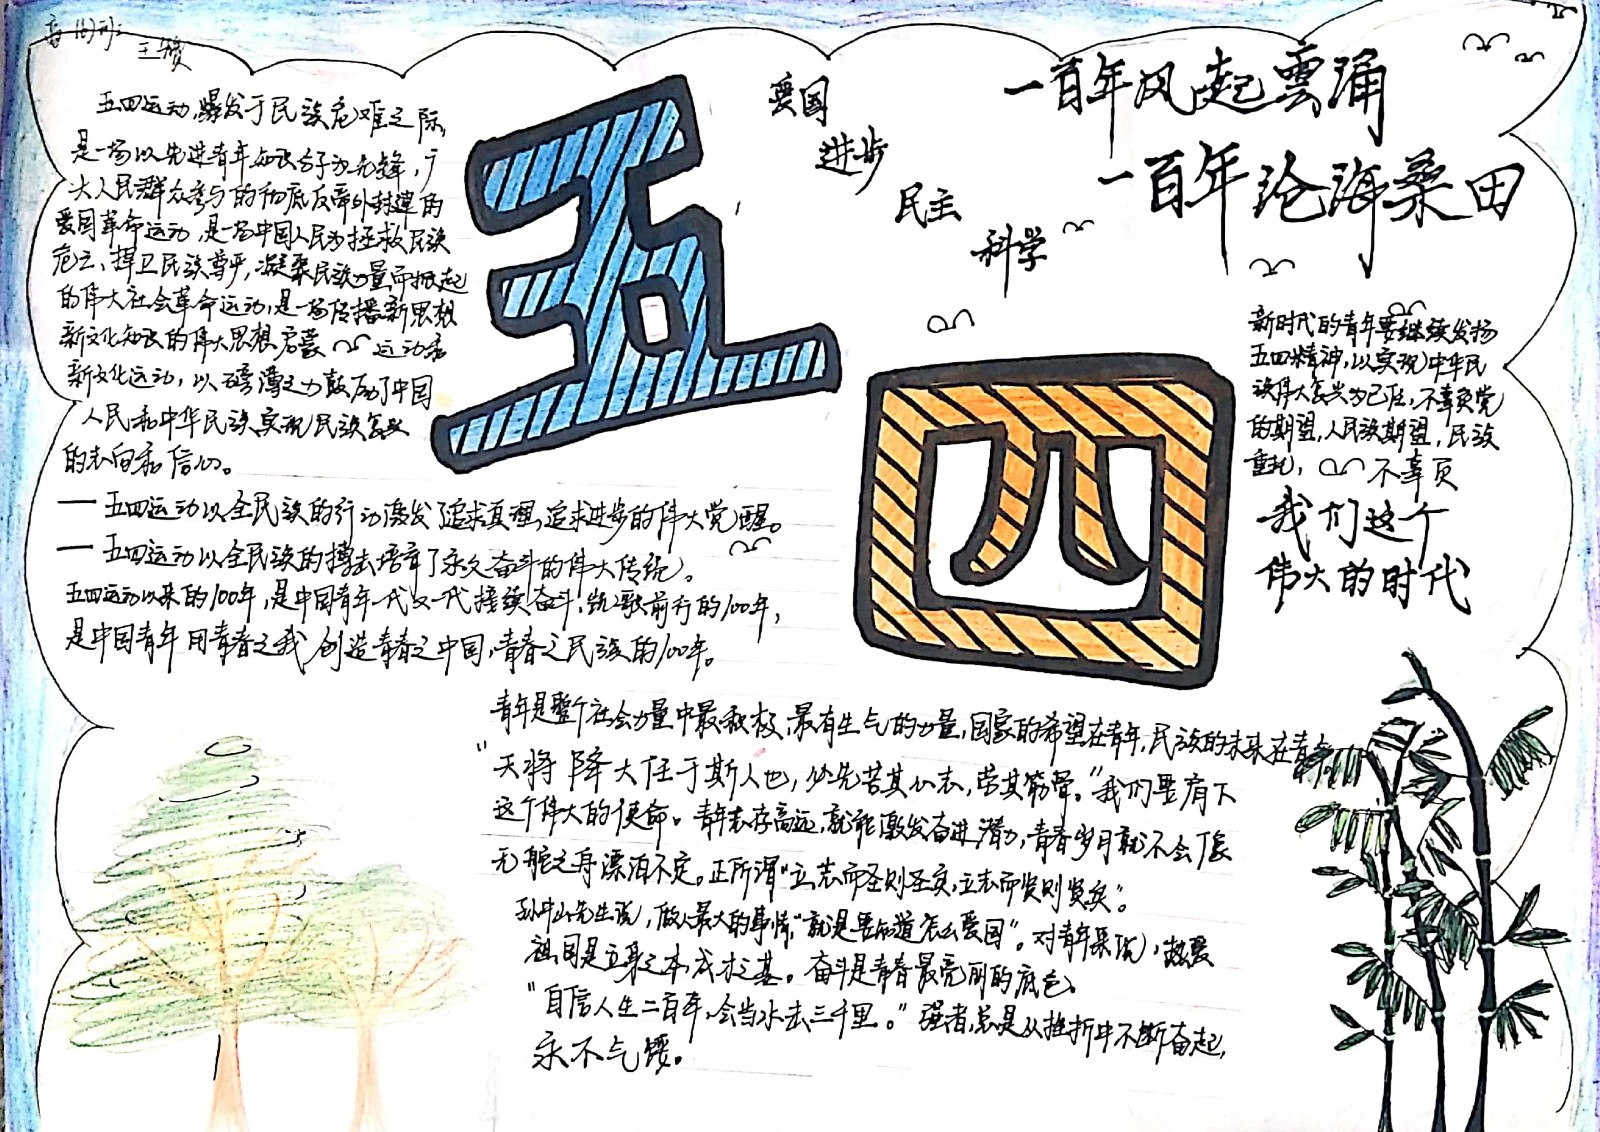 五四运动,爆发于民族危难之际,
是一场以先进青年知识分子为先锋,广
大人民群众参与的彻底反帝外封建的
爱国革命运动,是一场中国人民为拯救民族
危亡、捍卫民族尊严,凝聚民族力量而掀起
的伟大社会革命运动,是一场传播新思想
新文化知识的伟大思想启蒙 运动和
新文化运动,以磅薄之力鼓动了中国
人民和中华民族实现民族复兴
的志向和信心。
一 五四运动以全民族的行动激发了追求真理、追求进步的伟大觉醒。
一 五四运动以全民族的搏击培育了永久奋斗的伟大传统。
五四运动以来的100年,是中国青年一代又一代接续奋斗、凯歌前行的100年,
是中国青年用青春之我创造青春之中国,青春之民族的100年。
五四
爱国
进步
民主
科学
一百年风起雲涌
一百年沧海桑田
新时代的青年要继续发扬
五四精神,以实现中华民
族伟大复兴为己任,不辜负党
的期望,人民族期望,民族
重托, 不辜负
我们这个
伟大的时代
青年是整个社会力量中最积极,最有生气的力量,国家的希望在青年,民族的未来在青年
"天将降大任于斯人也,必先苦其心志,劳其筋骨。"我们要肩下
这个伟大的使命。青年志存高远,就能激发奋进潜力,青春岁月就不会像
无舵之舟漂泊不定。正所谓"立志而圣则圣矣,立志而贤则贤矣"。
孙中山先生说,做人最大的事情,"就是要知道怎么爱国"。对青年来说,热爱
祖国是立身之本,成才之基。奋斗是青春最亮丽的底色。
"自信人生二百年,会当水击三千里。"强者,总是从挫折中不断奋起,
永不气馁。